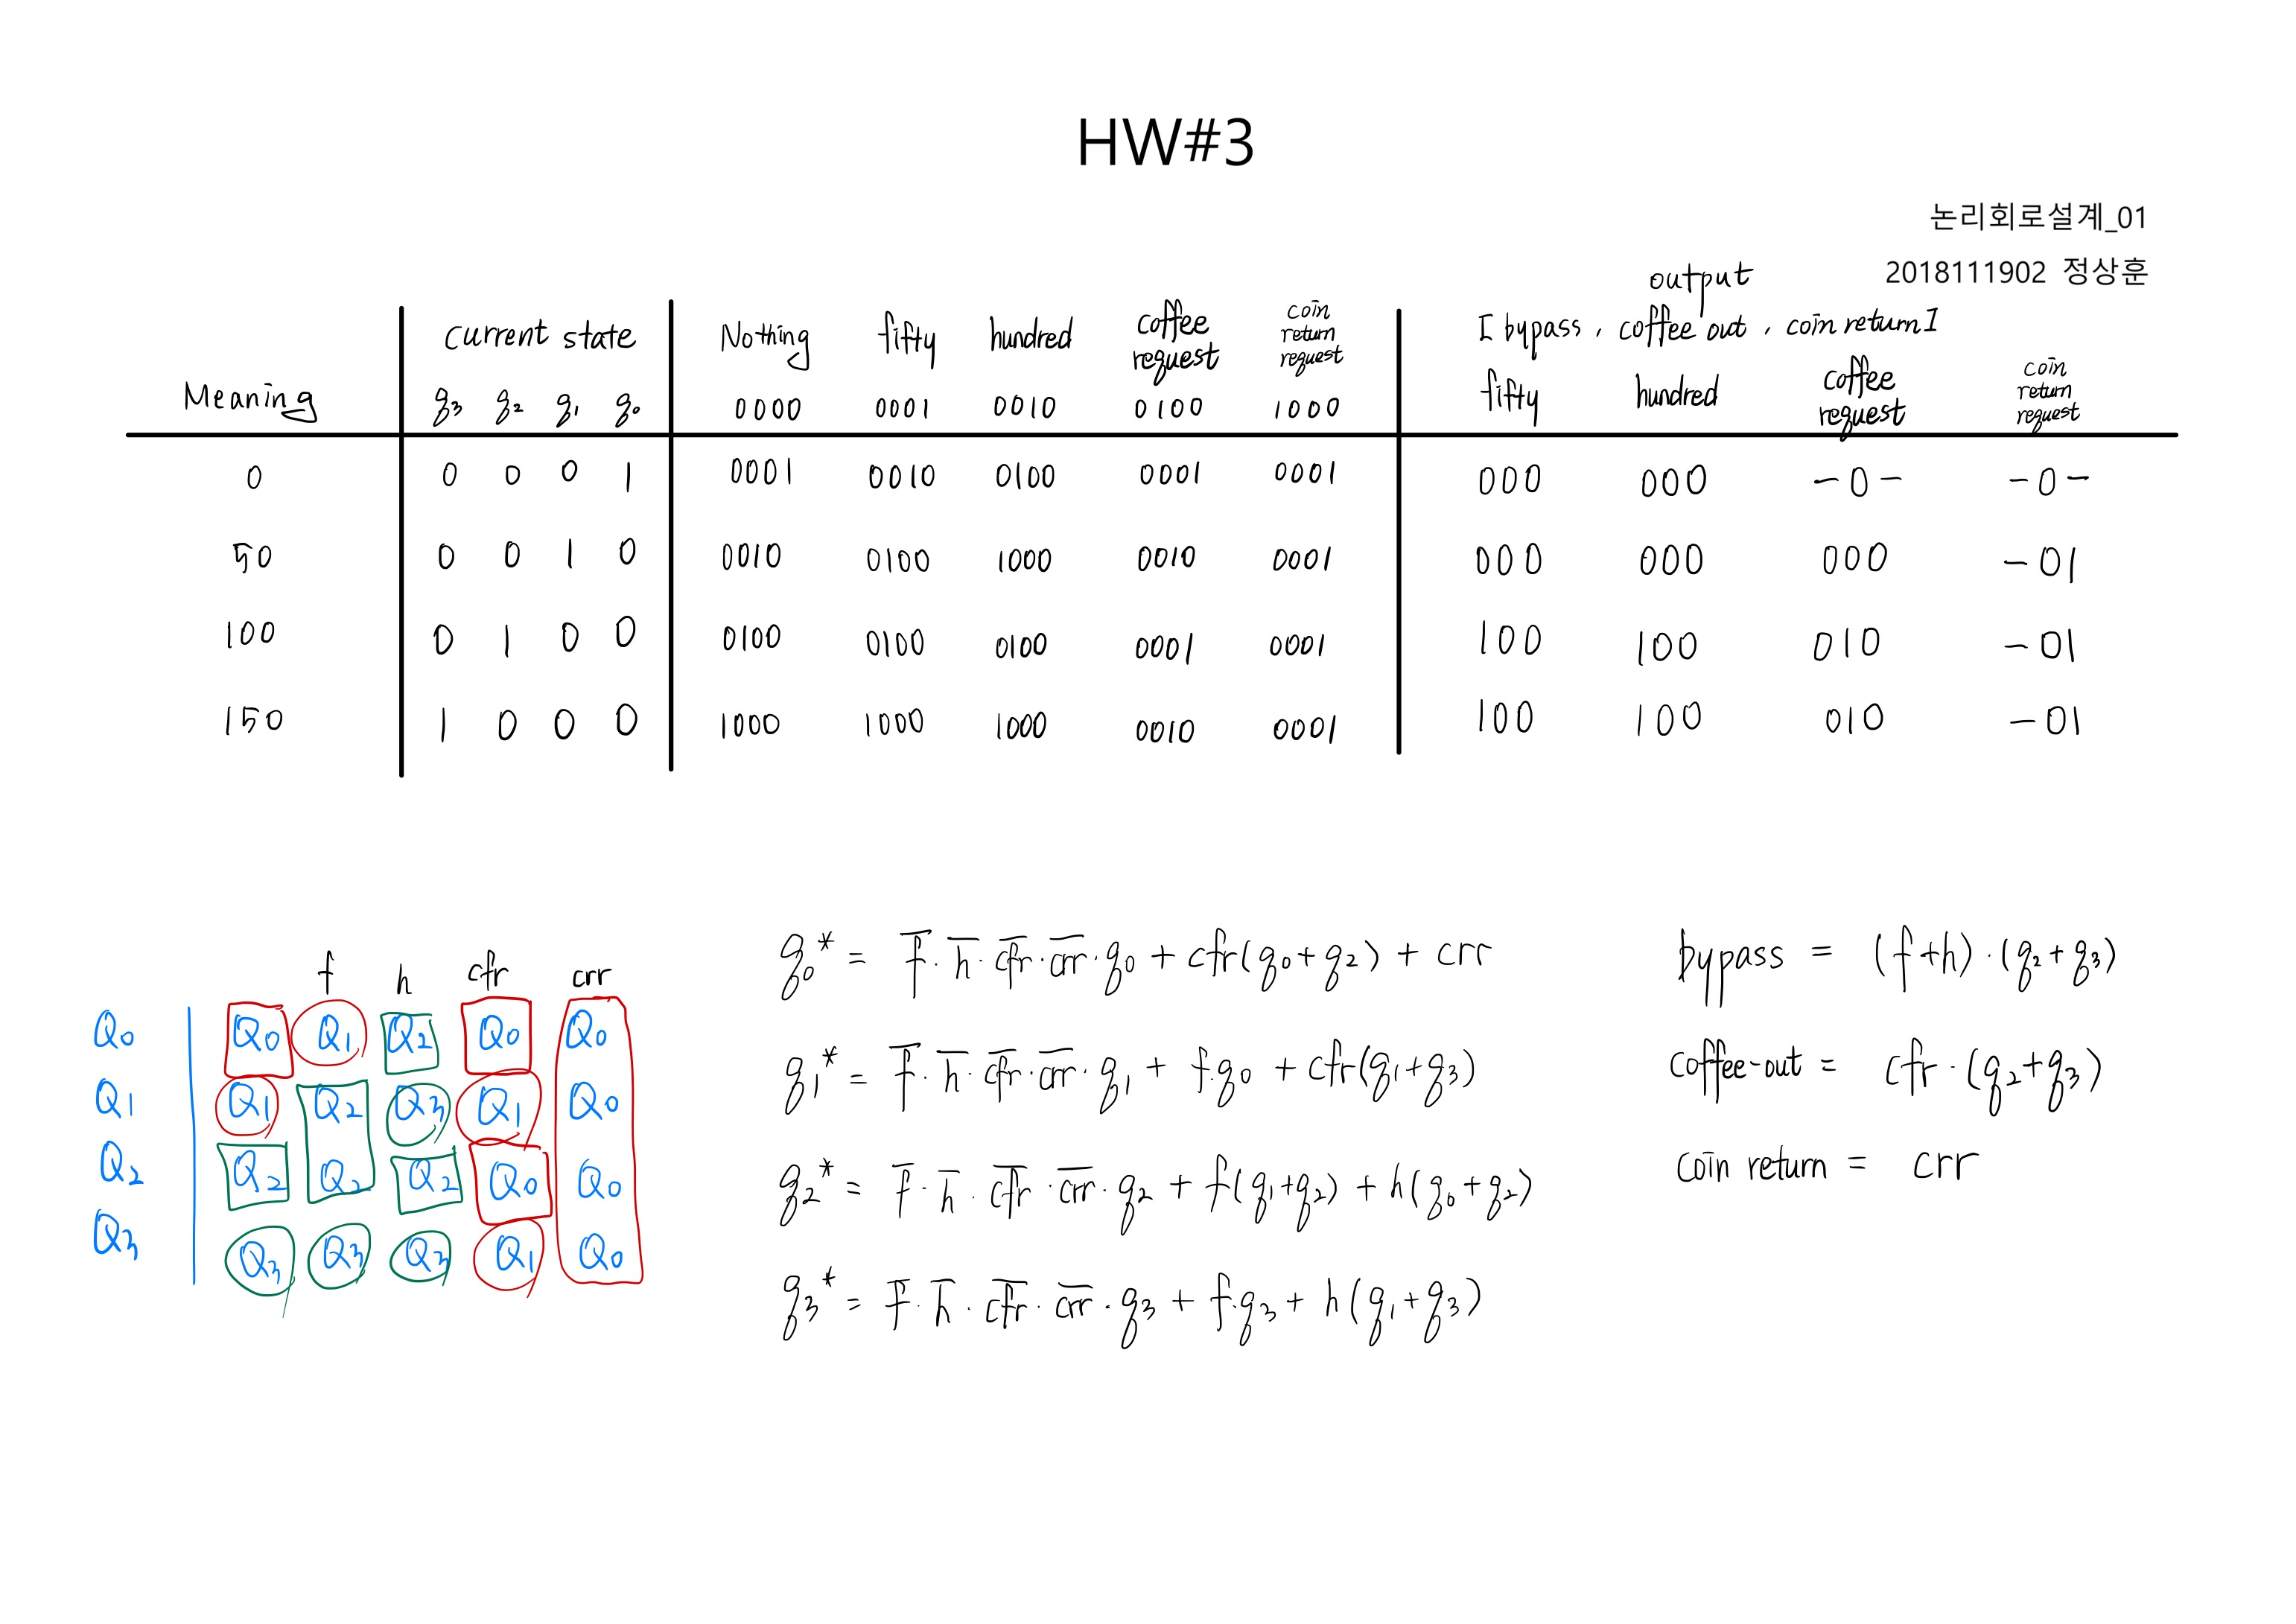 HW#3
논리회로설계_01
2018111902 정상훈
output
current state Nothing fifty hundred coffee request coin return request [ bypass, coffee out, coin return ]
Meaning q3 q2 q1 q0 0000 0001 0010 0100 1000 fifty hundred coffee request coin return request
0 0 0 0 1 0001 0010 0100 0001 0001 000 000 -0- -0-
50 0 0 1 0 0010 0100 1000 0010 0001 000 000 000 -01
100 0 1 0 0 0100 0100 0100 0001 0001 100 100 010 -01
150 1 0 0 0 1000 1000 1000 0010 0001 100 100 010 -01
f h cfr crr
Q0 Q0 Q1 Q2 Q0 Q0
Q1 Q1 Q2 Q3 Q1 Q0
Q2 Q2 Q2 Q2 Q0 Q0
Q3 Q3 Q3 Q3 Q1 Q0
q0* = f̅·h̅·c̅f̅r̅·c̅r̅r̅·q0 + cfr(q0+q2) + crr
q1* = f̅·h̅·c̅f̅r̅·c̅r̅r̅·q1 + f·q0 + cfr(q1+q3)
q2* = f̅·h̅·c̅f̅r̅·c̅r̅r̅·q2 + f(q1+q2) + h(q0+q2)
q3* = f̅·h̅·c̅f̅r̅·c̅r̅r̅·q3 + f·q3 + h(q1+q3)
bypass = (f+h)·(q2+q3)
coffee-out = cfr·(q2+q3)
coin return = crr